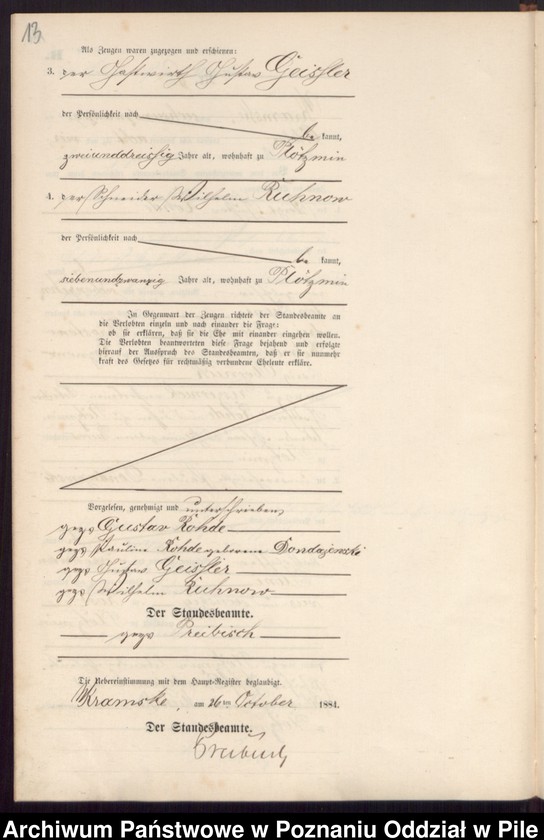 13
Als Zeugen waren zugezogen und erschienen:
3. der Gastwirth Gustav Geissler
der Persönlichkeit nach
be kannt,
zweiunddreißig Jahre alt, wohnhaft zu Plötzmin
4. der Schneider Wilhelm Ruhnow
der Persönlichkeit nach
be kannt,
siebenundzwanzig Jahre alt, wohnhaft zu Plötzmin
In Gegenwart der Zeugen richtete der Standesbeamte an
die Verlobten einzeln und nach einander die Frage:
ob sie erklären, daß sie die Ehe mit einander eingehen wollen.
Die Verlobten beantworteten diese Frage bejahend und erfolgte
hierauf der Ausspruch des Standesbeamten, daß er sie nunmehr
kraft des Gesetzes für rechtmäßig verbundene Eheleute erkläre.
Vorgelesen, genehmigt und unterschrieben
gez. Gustav Rohde
gez. Pauline Rohde geborene Dondajewski
gez. Gustav Geissler
gez. Wilhelm Ruhnow
Der Standesbeamte.
gez. Preibisch
Die Uebereinstimmung mit dem Haupt-Register beglaubigt.
Kramske, am 26ten October 1884.
Der Standesbeamte.
Preibisch
Archiwum Państwowe w Poznaniu Oddział w Pile